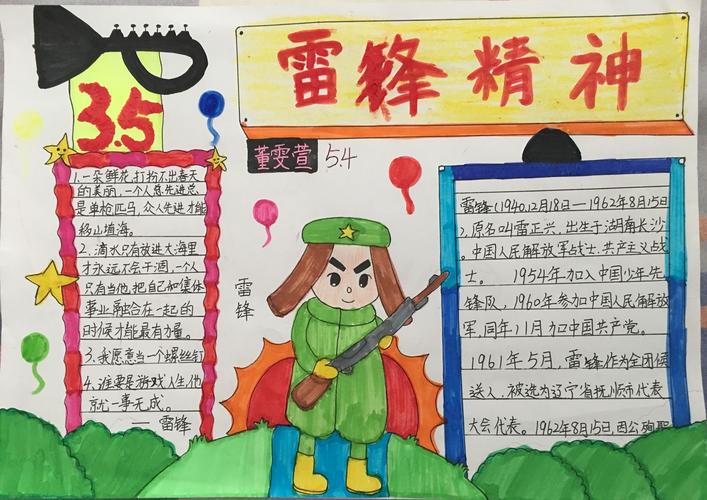 雷锋精神
3.5
董雯萱 5.4
1.一朵鲜花打扮不出春天
的美丽,一个人总先进总
是单枪匹马,众人先进才能
移山填海。
2.滴水只有放进大海里
才永远不会干涸,一个人
只有当他把自己和集体
事业融合在一起的
时候才能最有力量。
3.我愿意当一个螺丝钉
4.谁要是游戏人生他
就一事无成。
——雷锋
雷锋
雷锋(1940.12月18日—1962年8月15日
2.原名叫雷正兴,出生于湖南长沙
.中国人民解放军战士.共产主义战
士。 1954年加入中国少年先
锋队,1960年参加中国人民解放
军,同年11月加中国共产党。
1961年5月,雷锋作为全团候
送人,被选为辽宁省抚顺市代表
大会代表。1962年8月15日,因公殉职